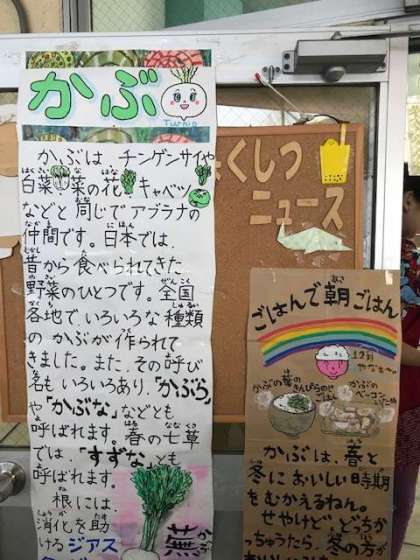 かぶ
Turnip
かぶは、チンゲンサイや
白菜、菜の花、キャベツ
などと同じでアブラナの
仲間です。日本では、
昔から食べられてきた
野菜のひとつです。全国
各地で、いろいろな種類
のかぶが作られて
きました。また、その呼び
名もいろいろあり、「かぶら」
や「かぶな」などとも
呼ばれます。春の七草
では、「すずな」とも
呼ばれます。
根には、
消化を助
けるジアス
蕪
かぶ
くしつ
ニュース
ごはんで朝ごはん
かぶの葉の
きんぴらのせ
ごはん
かぶの
ベーコン
かぶは、春と
冬においしい時期
をむかえるねん。
せやけど、どっちか
っちゅうたら、冬の方が